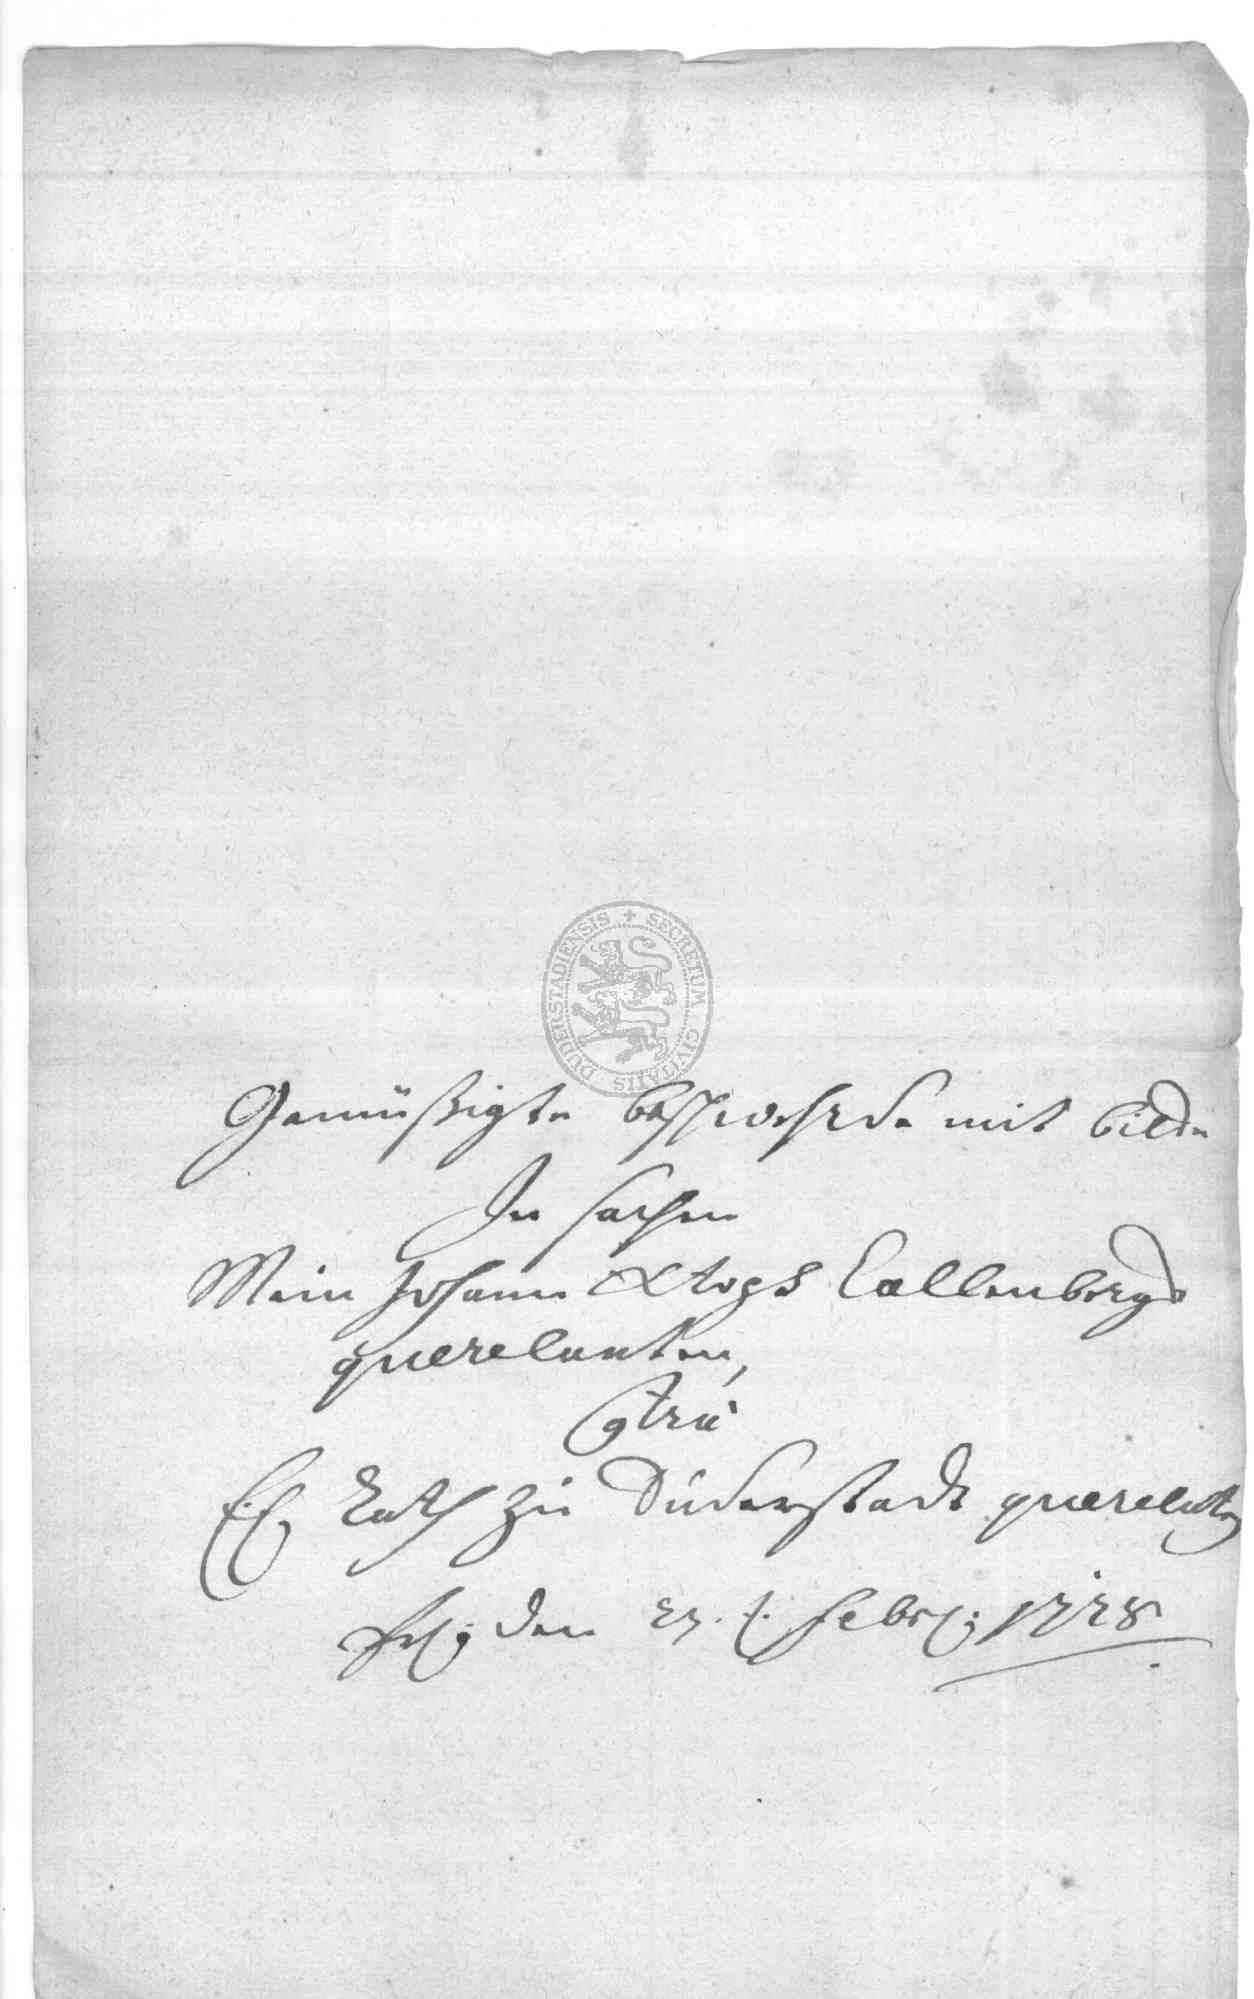 SECRETUM CIVITATIS DUDERSTADIENSIS
Gemüßigte beschwehrde mit bitte
In sachen
Mein Johann Xtoph Callenbergs
querelanten,
Ctra
E. E. Rath zu Duderstadt querelaten
den 27. t. Febr: 1728